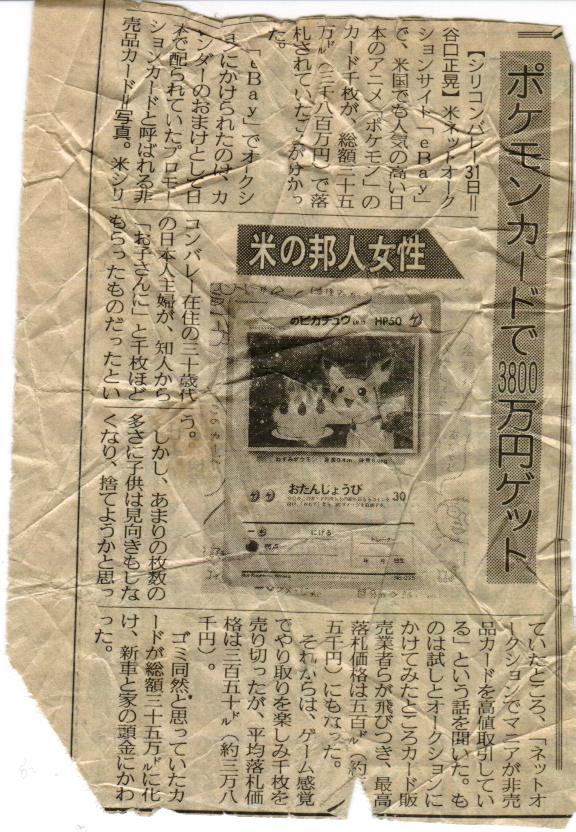 ポケモンカードで3800万円ゲット
【シリコンバレー31日＝
谷口正晃】米ネットオーク
ションサイト「eBay」
で、米国でも人気の高い日
本のアニメ「ポケモン」の
カード千枚が、総額三十五
万㌦（三千八百万円）で落
札されていたことが分かっ
た。
「eBay」でオークシ
ョンにかけられたのは、カ
レンダーのおまけとして日
本で配られていたプロモー
ションカードと呼ばれる非
売品カード＝写真。米シリ
米の邦人女性
のピカチュウ HP50
ねずみポケモン
おたんじょうび 30
にげる
弱点
トレーナー
No.025
コンバレー在住の三十歳代
の日本人主婦が、知人から
「お子さんに」と千枚ほど
もらったものだったとい
う。
しかし、あまりの枚数の
多さに子供は見向きもしな
くなり、捨てようかと思っ
ていたところ、「ネットオ
ークションでマニアが非売
品カードを高値取引してい
る」という話を聞いた。も
のは試しとオークションに
かけてみたところカード販
売業者らが飛びつき、最高
落札価格は五百㌦（約
五千円）にもなった。
それからは、ゲーム感覚
でやり取りを楽しみ千枚を
売り切ったが、平均落札価
格は三百五十㌦（約三万八
千円）。
ゴミ同然と思っていたカ
ードが総額三十五万㌦に化
け、新車と家の頭金にかわ
った。